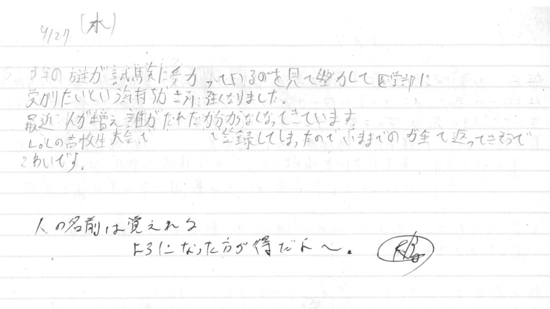 4/27 (水)
3年の 謎が 試験に受かっているのを見て努力して医学部に
受かりたいという気持ちがさらに強くなりました。
最近 人が増え 誰がだれだか分からなくなってきています。
LoLの高校生大会 登録してしまったので 今までの が全て返ってきそうで
こわいです。
人の名前は覚えれる
ようになった方が得だよ〜。